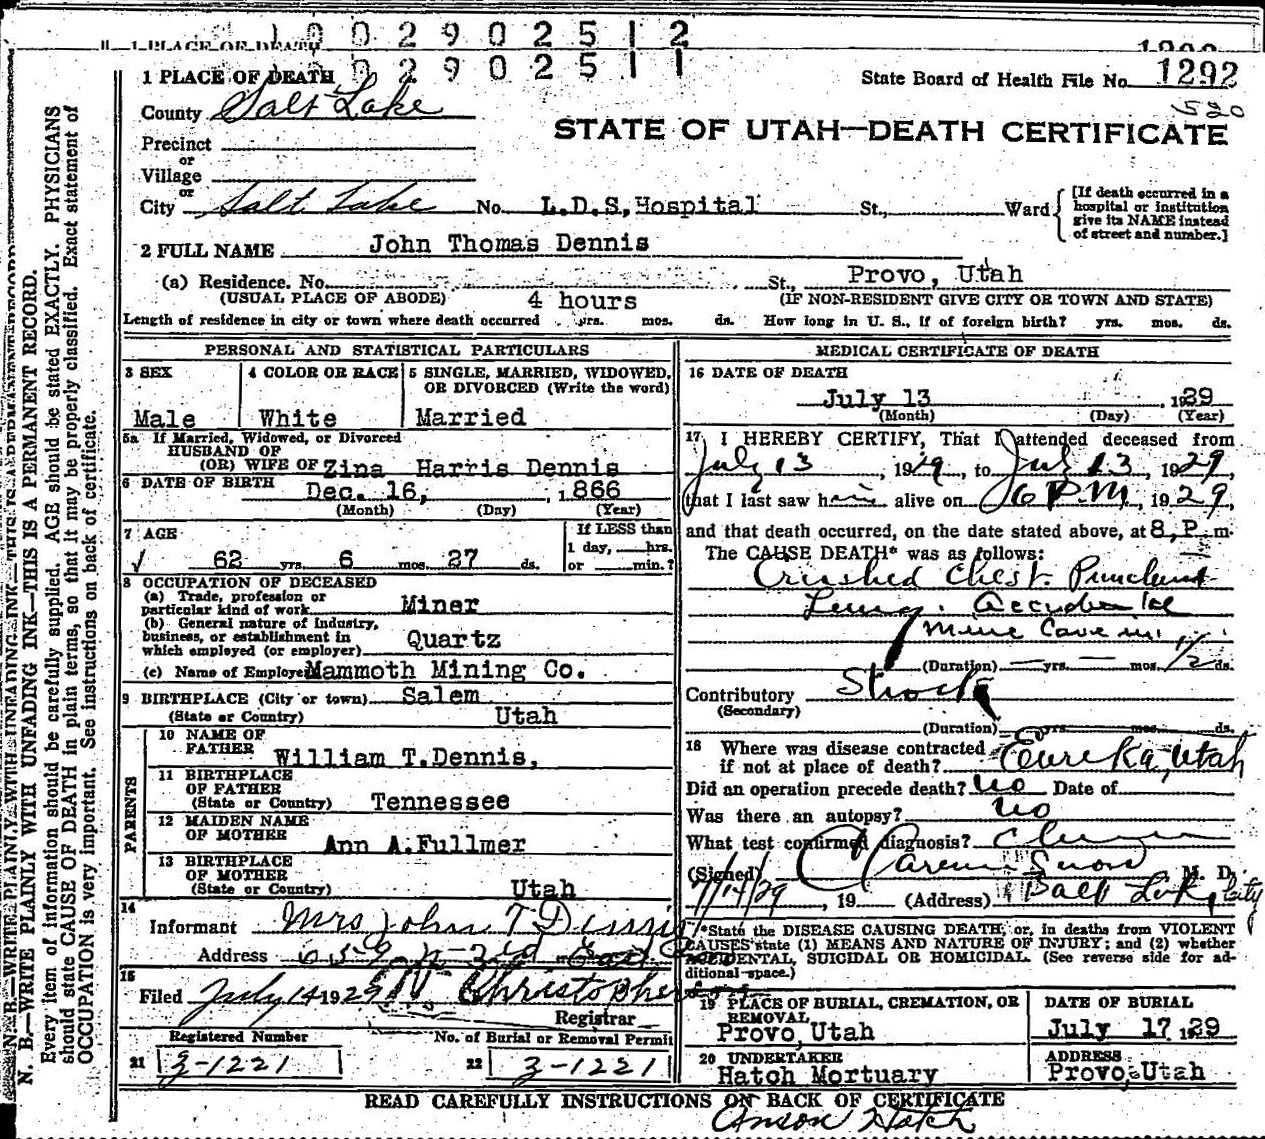 1 0 0 2 9 0 2 5 1 2
1 PLACE OF DEATH
0 2 9 0 2 5 1 1
1 PLACE OF DEATH
State Board of Health File No. 1292
520
County Salt Lake
STATE OF UTAH—DEATH CERTIFICATE
Precinct
or
Village
or
City Salt Lake No. L.D.S, Hospital St., Ward
[If death occurred in a hospital or institution give its NAME instead of street and number.]
2 FULL NAME John Thomas Dennis
(a) Residence. No. St., Provo, Utah
(USUAL PLACE OF ABODE) 4 hours (IF NON-RESIDENT GIVE CITY OR TOWN AND STATE)
Length of residence in city or town where death occurred yrs. mos. ds. How long in U. S., if of foreign birth? yrs. mos. ds.
PERSONAL AND STATISTICAL PARTICULARS
3 SEX 4 COLOR OR RACE 5 SINGLE, MARRIED, WIDOWED, OR DIVORCED (Write the word)
Male White Married
5a If Married, Widowed, or Divorced
HUSBAND OF
(OR) WIFE OF Zina Harris Dennis
6 DATE OF BIRTH Dec. 16, 1866
(Month) (Day) (Year)
7 AGE If LESS than
1 day, hrs.
62 yrs. 6 mos. 27 ds. or min.?
8 OCCUPATION OF DECEASED
(a) Trade, profession or
particular kind of work Miner
(b) General nature of industry,
business, or establishment in
which employed (or employer) Quartz
(c) Name of Employer Mammoth Mining Co.
9 BIRTHPLACE (City or town) Salem
(State or Country) Utah
PARENTS
10 NAME OF
FATHER William T. Dennis,
11 BIRTHPLACE
OF FATHER
(State or Country) Tennessee
12 MAIDEN NAME
OF MOTHER Ann A. Fullmer
13 BIRTHPLACE
OF MOTHER
(State or Country) Utah
14
Informant Mrs John T Dennis
Address 659 N-3rd East
15
Filed July 14 1929 Christopherson
Registrar
Registered Number No. of Burial or Removal Permit
21 3-1221 22 3-1221
MEDICAL CERTIFICATE OF DEATH
16 DATE OF DEATH
July 13 1929
(Month) (Day) (Year)
17 I HEREBY CERTIFY, That I attended deceased from
July 13, 1929, to July 13, 1929
that I last saw him alive on 6 P.M, 1929,
and that death occurred, on the date stated above, at 8, P. m.
The CAUSE DEATH* was as follows:
Crushed Chest. Punctured
Lung. Accidental
Mine Cave in.
(Duration) yrs. mos. 1/2 ds.
Contributory Shock
(Secondary)
(Duration) yrs. mos. ds.
18 Where was disease contracted
if not at place of death? Eureka, Utah
Did an operation precede death? no Date of
Was there an autopsy? no
What test confirmed diagnosis?
(Signed) Clarence Snow M. D.
7/14/29, 19 (Address) Salt Lake City
*State the DISEASE CAUSING DEATH, or, in deaths from VIOLENT
CAUSES state (1) MEANS AND NATURE OF INJURY; and (2) whether
ACCIDENTAL, SUICIDAL OR HOMICIDAL. (See reverse side for ad-
ditional space.)
19 PLACE OF BURIAL, CREMATION, OR REMOVAL DATE OF BURIAL
Provo, Utah July 17 1929
20 UNDERTAKER ADDRESS
Hatch Mortuary Provo, Utah
READ CAREFULLY INSTRUCTIONS ON BACK OF CERTIFICATE
Anson Hatch
N. B.—WRITE PLAINLY WITH UNFADING INK—THIS IS A PERMANENT RECORD.
Every item of information should be carefully supplied. AGE should be stated EXACTLY. PHYSICIANS
should state CAUSE OF DEATH in plain terms, so that it may be properly classified. Exact statement of
OCCUPATION is very important. See instructions on back of certificate.